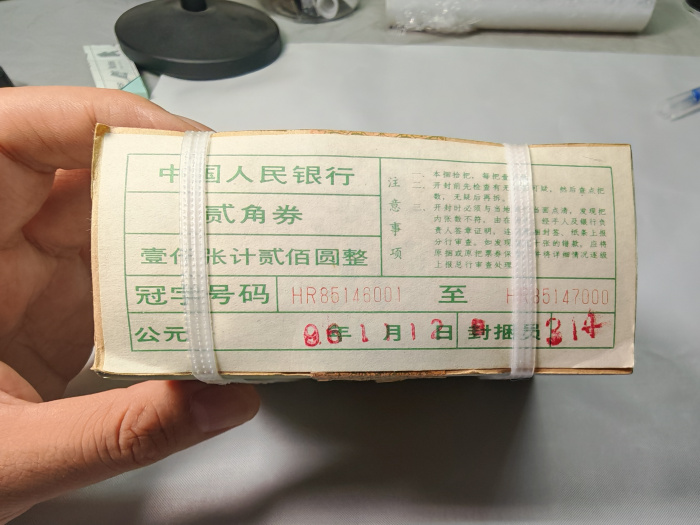 中国人民银行
贰角券
壹仟张计贰佰圆整
冠字号码 HR85146001 至 HR85147000
公元 86年11月12日 封捆员 314
注意事项
一、本捆检把，每把查
二、开封前先检查有无 可疑，然后查点把
数，无疑后再拆。
三、开封时必须与当地 当面点清，发现把
内张数不符，由在 经手人及银行负
责人签章证明，连 封签、纸条上报
分行审查。如发现 张的错款，应将
原捆或原把票券保 将详细情况速报
上报总行审查处理